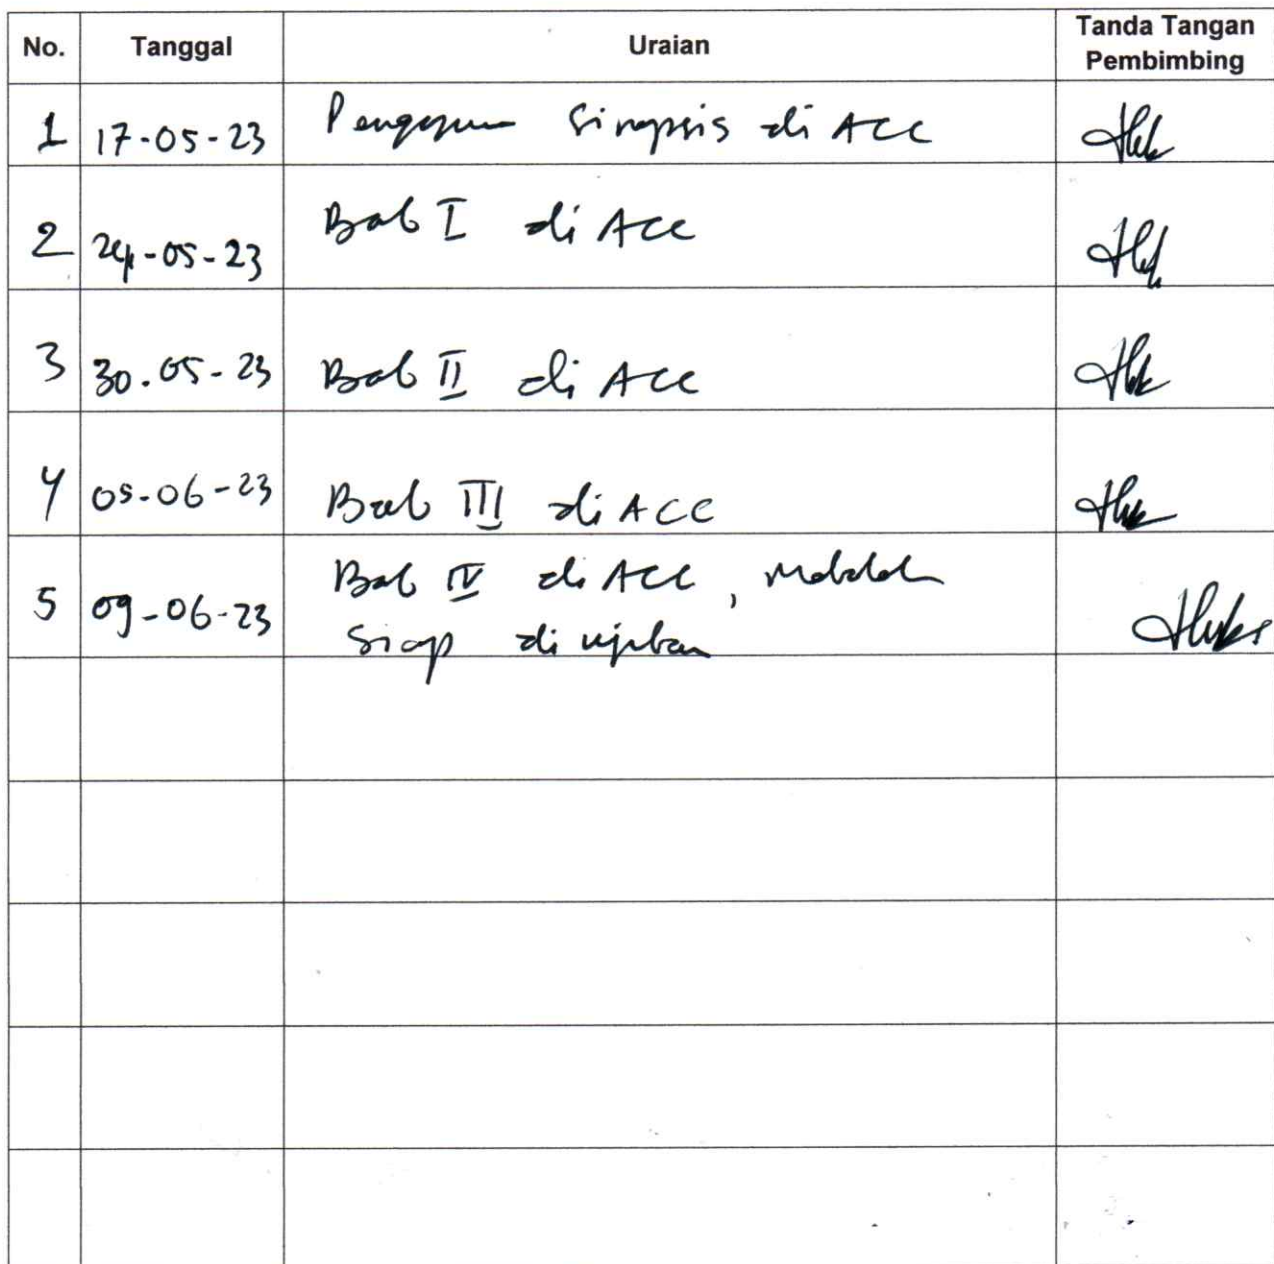 No. Tanggal Uraian Tanda Tangan
Pembimbing
1 17-05-23 Sinopsis di ACC
2 24-05-23 Bab I di Acc
3 30.05-23 Bab II di Acc
4 05-06-23 Bab III di ACC
5 09-06-23 Bab IV di Acc,
Siap di ujikan